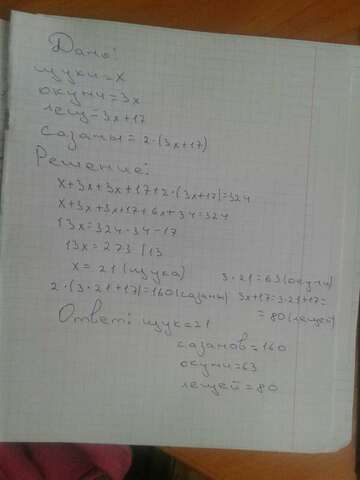 Дано:
щуки=x
окуни=3x
лещ=3x+17
сазаны=2·(3x+17)
Решение:
x+3x+3x+17+2·(3x+17)=324
x+3x+3x+17+6x+34=324
13x=324-34-17
13x=273 |13
x=21(щука) 3·21=63(окуни)
2·(3·21+17)=160(сазаны) 3x+17=3·21+17=
=80(лещей)
Ответ: щук=21
сазанов=160
окуни=63
лещей=80